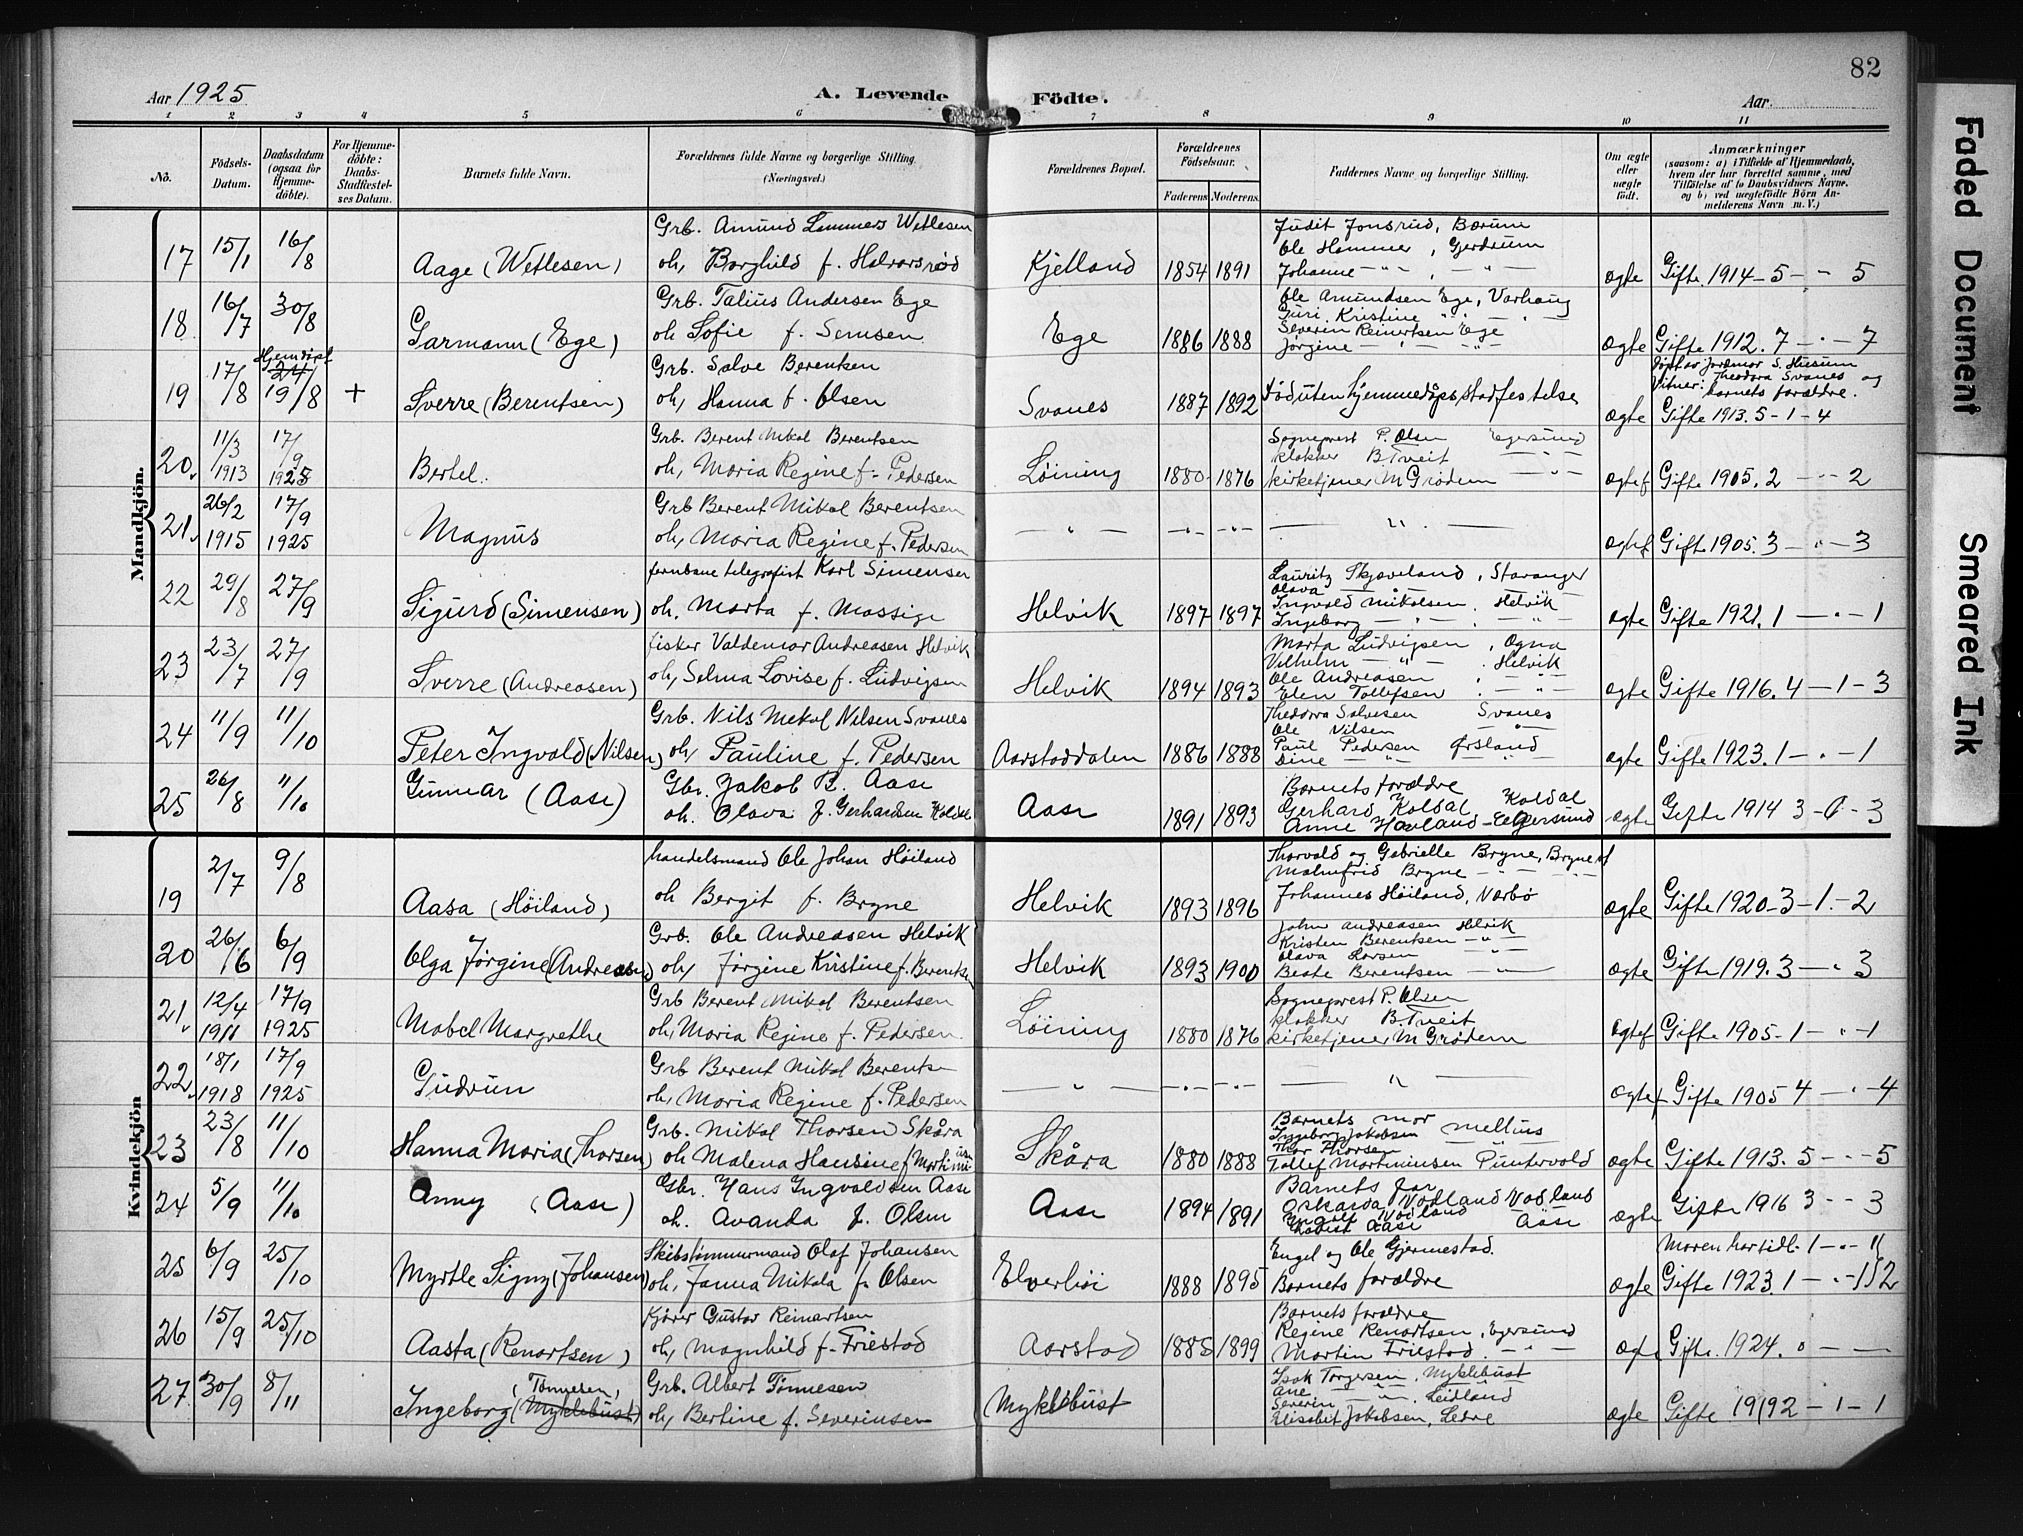 82
Aar 1925
A. Levende Födte.
Aar
1 2 3 4 5 6 7 8 9 10 11
No.
Födsels-Datum.
Daabsdatum (ogsaa for Hjemme-döbte).
For Hjemme-döbte: Daabs-Stadfæstel-ses Datum.
Barnets fulde Navn.
Forældrenes fulde Navne og borgerlige Stilling. (Næringsvei.)
Forældrenes Bopæl.
Forældrenes Födselsaar.
Faderens Moderens
Faddernes Navne og borgerlige Stilling.
Om ægte eller uægte födt.
Anmærkninger
(saasom: a) i Tilfælde af Hjemmedaab, hvem der har forrettet samme, med Tilföielse af to Daabsvidners Navne, og b) ved uægtefödte Börn An-melderens Navn m. V.)
Mandkjön.
17 15/1 16/8 Aage (Wetlesen) Grb. Amund Lammers Wetlesen
oh, Borghild f. Halvorsrød Kjelland 1854 1891 Judit Jonsrud, Bærum
Ole Hammer, Gjerdrum
Johanne – " – , – " – ægte Gifte 1914 – 5 – " 5
18 16/7 30/8 Garmann (Ege) Grb. Talius Andersen Ege
oh Sofie f. Semsen Ege 1886 1888 Ole Amundsen Ege, Varhaug
Guri Kristine " – "
Severin Reinertsen Ege
Jørgine – " – " – ægte Gifte 1912. 7 – " – 7
19 17/8 Hjemdøpt 24/ 19/8 + Sverre (Berentsen) Grb. Salve Berentsen
oh, Hanna f. Olsen Svanes 1887 1892 Død uten hjemmedåps stadfestelse ægte Døpt av jordmor S. Husum
Vitner: Theodora Svanes og
barnets forældre.
Gifte 1913. 5 – 1 – 4
20. 11/3 1913 17/9 1925 Bertel. Grb. Berent Mikal Berentsen
oh, Maria Regine f. Pedersen Løining 1880 1876 Sogneprest P. Olsen Egersund
klokker B. Tveit – " –
kirketjener M Grødem – " – ægtef Gifte 1905. 2 – " – 2
21. 26/2 1915 17/9 1925 Magnus Grb Berent Mikal Berentsen
oh, Maria Regine f. Pedersen – " – – " – – " – – " – ægtef Gifte 1905. 3 – " – 3
22 29/8 27/9 Sigurd (Simensen) jernbane telegrafist Karl Simensen
oh. Marta f. Mossige Helvik 1897 1897 Lauritz Skjæveland, Stavanger
Olava – " –
Ingvald Mikalsen. Helvik
Ingeborg – " – . – " – ægte Gifte 1921. 1 – " – 1
23 23/7 27/9 Sverre (Andreasen) fisker Valdemar Andreasen Helvik
oh, Selma Lovise f. Ludvigsen Helvik 1894 1893 Marta Ludvigsen, Ogna
Vilhelm – " – . Helvik
Ole Andreasen
Elen Tollefsen . – " – ægte Gifte 1916. 4 – 1 – 3
24 11/9 11/10 Peter Ingvald (Nilsen) Grb. Nils Mekal Nilsen Svanes
oh, Pauline f. Pedersen Aarstaddalen 1886 1888 Theodora Salvesen Svanes
Ole Nilsen – " –
Paul Pedersen Ørsland
Dine – " – – " – ægte Gifte 1923. 1 – " – 1
25 26/8 11/10 Gunnar (Aase) Gbr. Jakob B. Aase
oh. Olava f. Gerhardsen Koldal Aase 1891 1893 Barnets forældre
Gerhard Koldal Koldal
Anne Havland – Egersund ægte Gifte 1914 3 – 0 – 3
Kvindekjön
19 2/7 9/8 Aasa (Høiland) handelsmand Ole Johan Høiland
oh Bergit f. Bryne Helvik 1893 1896 Thorvald og Gabrielle Bryne, Bryne
Malmfrid Bryne – " –
Johannes Høiland, Nærbø ægte Gifte 1920 – 3 – 1 – 2
20 26/6 6/9 Olga Jörgine (Andreasen) Grb. Ole Andreasen Helvik
oh, Jörgine Kristine f. Berentsen Helvik 1893 1900 John Andreasen Helvik
Kristen Berentsen – " –
Olava Larsen – " –
Beate Berentsen – " – ægte Gifte 1919. 3 – " 3
21. 12/4 1911 17/9 1925 Mabel Margrethe Grb Berent Mikal Berentsen
oh, Maria Regine f. Pedersen Løining 1880 1876 Sogneprest P. Olsen
klokker B. Tveit
kirketjener M Grødem ægtef Gifte 1905 – 1 – " – 1
22. 18/1 1918 17/9 1925 Gudrun Grb Berent Mikal Berents
oh, Maria Regine f. Pedersen – " – – " – – " – – " – ægtef Gifte 1905 4 – " – 4
23 23/8 11/10 Hanna Maria (Thorsen) Grb. Mikal Thorsen Skåra
oh Malena Hansine f Mortiminsen Skåra 1880 1888 Barnets mor
Ingeborg Jakobsen Mellius
Thor Thorsen
Tollef Mortiminsen Puntervold ægte Gifte 1913. 5 – " – 5
24 5/9 11/10 Anny (Aase) Gbr. Hans Ingvaldsen Aase
oh. Avanda f. Olsen Aase 1894 1891 Barnets far
Oskarda Vodland Vodland
Vodland
Aase Aase ægte Gifte 1916 3 – " – 3
25 6/9 25/10 Myrtle Signy (Johansen) Skibstømmermand Olaf Johansen
oh, Janna Mikala f. Olsen Elverhöi 1888 1895 Engel og Ole Gjermestad.
Barnets forældre ægte Moren har tidl. 1 – " – 1
Gifte 1923. 1 – " – 1 } 2
26 15/9 25/10 Aasta (Renartsen) Kjører Gustav Reinartsen
oh, Magnhild f. Friestad Aarstad 1885 1899 Barnets forældre
Regine Renartsen, Egersund
Martin Friestad – " – Gifte. 1924. 0 – –
27 30/9 8/11 Ingeborg (Tønnesen) (Myklebust) Grb. Albert Tønnesen
oh, Bertine f. Severinsen Myklebust Isak Torgersen, Myklebust
Ane – " –
Severin – " – Leidland
Elisabet Jakobsen, Ledre ægte Gifte 19192 – 1 – 1
Faded Document
Smeared Ink